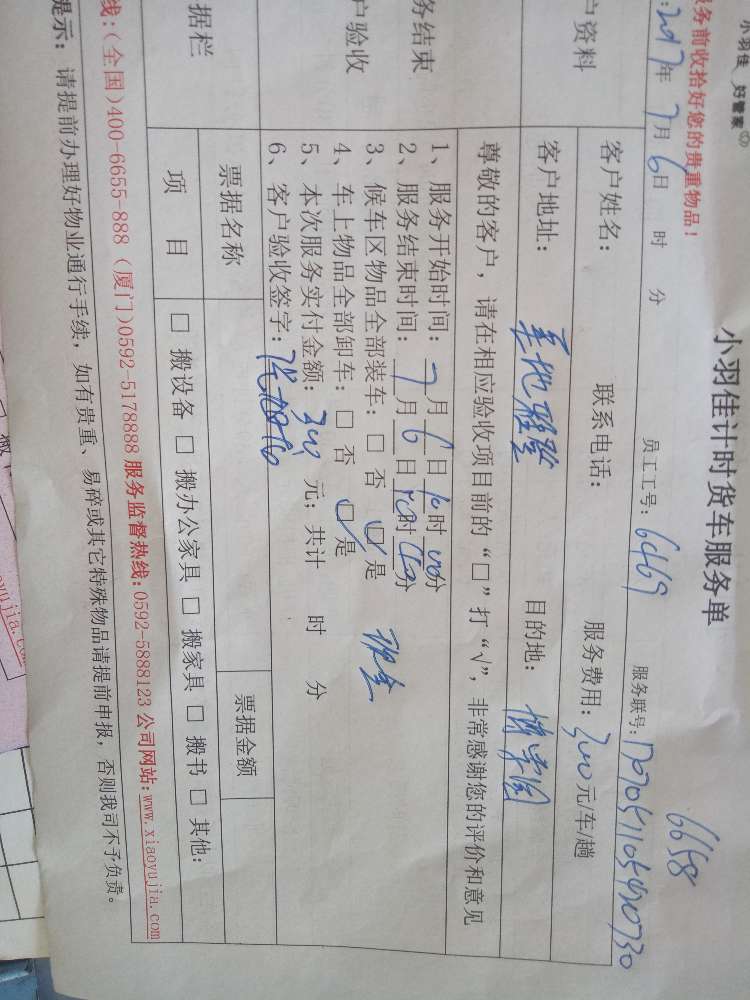 小羽佳 好管家
小羽佳计时货车服务单
6658
服务前收拾好您的贵重物品！
：2017年7月6日 时 分 员工工号：6469 服务联号：
户资料
客户姓名： 联系电话： 服务费用：300元/车/趟
客户地址： 目的地：博学园
尊敬的客户，请在相应验收项目前的“□”打“√”，非常感谢您的评价和意见
务结束
户验收
1、服务开始时间：7月6日10时00分
2、服务结束时间：7月6日 时 分
3、候车区物品全部装车：□ 否 □ 是
4、车上物品全部卸车：□ 否 □ 是 现金
5、本次服务实付金额：300元；共计 时 分
6、客户验收签字：
据栏
票据名称 票据金额
项 目 □ 搬设备 □ 搬办公家具 □ 搬家具 □ 搬书 □ 其他：
线：(全国)400-6655-888 (厦门)0592-5178888 服务监督热线：0592-5888123 公司网站：www.xiaoyujia.com
提示：请提前办理好物业通行手续，如有贵重、易碎或其它特殊物品请提前申报，否则我司不予负责。